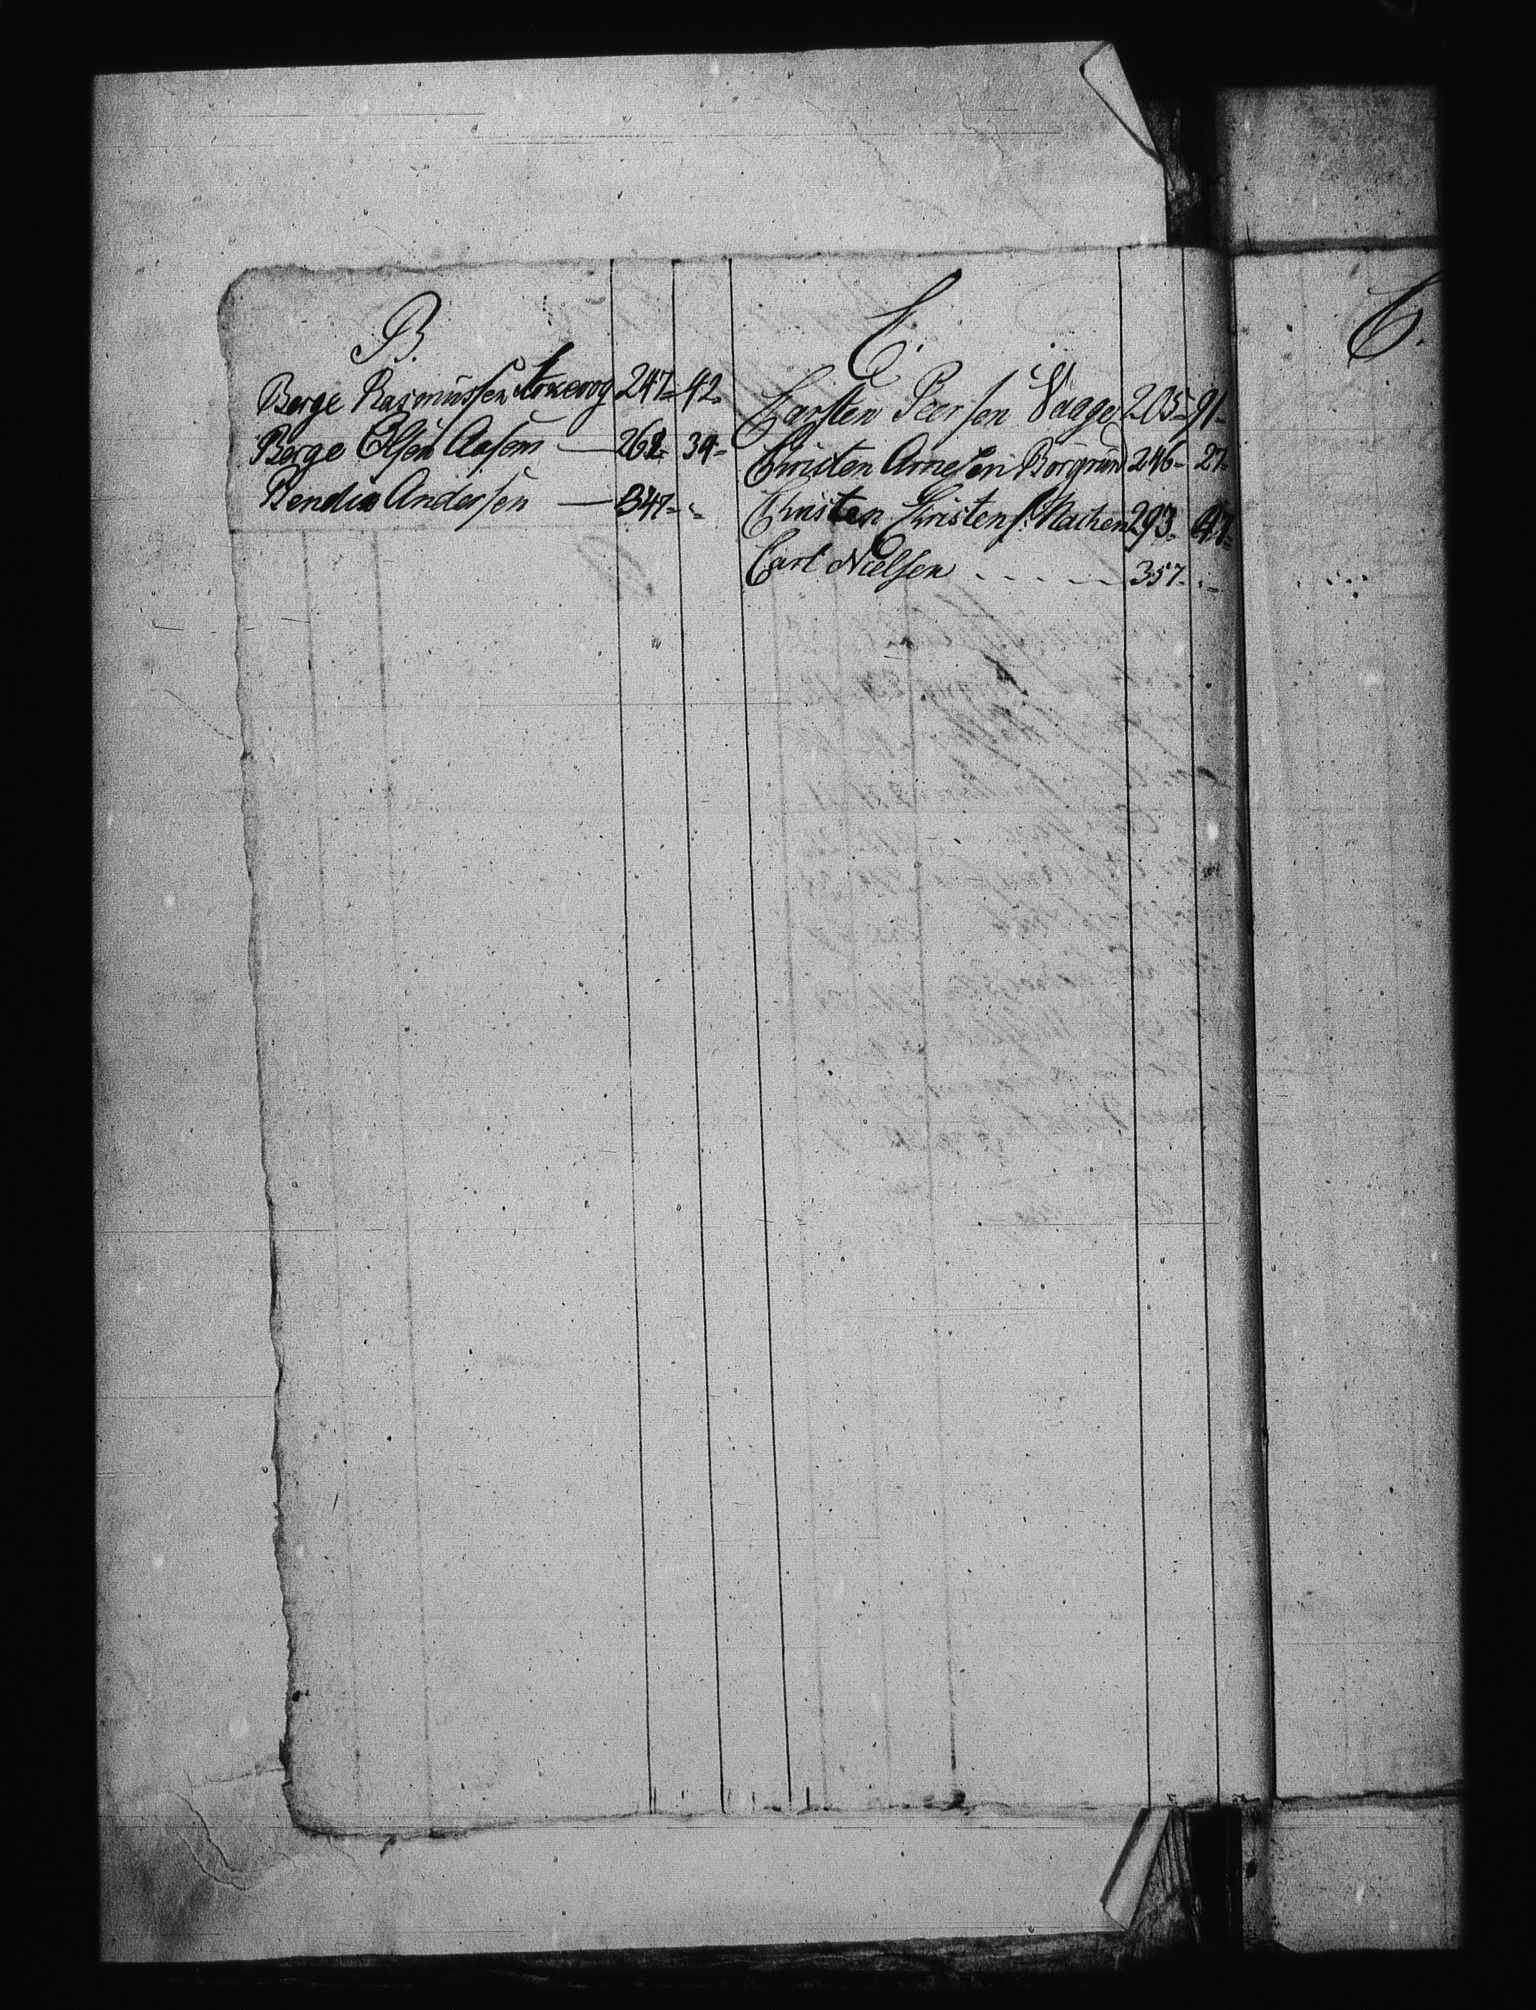 B.
Berge Rasmussen 247- 42-
Berge Olsen Aasen — 262- 34-
Bendix Andersen — 347- -
C.
Carsten Peersen Vaage 205- 91-
Christen Arnesen Borgrund 246- 27-
Christen Christens: Nachen 293- 47-
Carl Nielsen - - - - - 357- -
C.